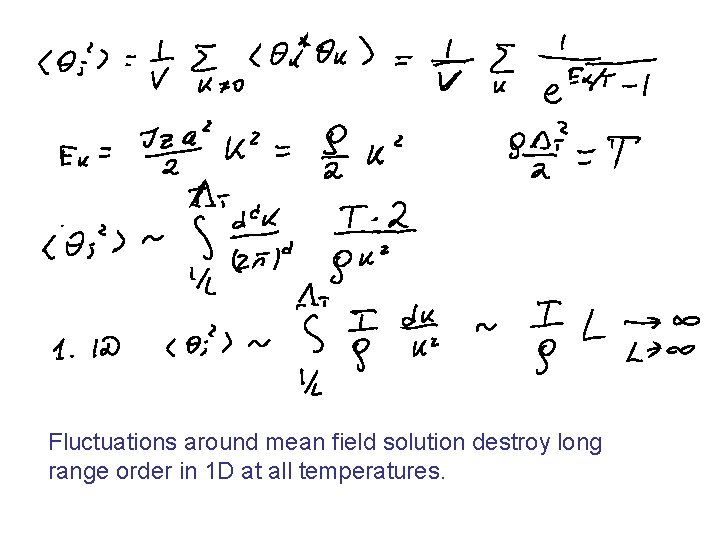 ⟨θ_i²⟩ = 1/V Σ_{k≠0} ⟨θ_k* θ_k⟩ = 1/V Σ_k 1/(e^{E_k/T} - 1)
E_k = Jza²/2 k² = ρ/2 k²   ρΛ_T²/2 = T
⟨θ_i²⟩ ~ ∫_{1/L}^{Λ_T} d^dk/(2π)^d T·2/ρk²
1. 1D ⟨θ_i²⟩ ~ ∫_{1/L}^{Λ_T} T/ρ dk/k² ~ T/ρ L → ∞ L→∞
Fluctuations around mean field solution destroy long
range order in 1D at all temperatures.